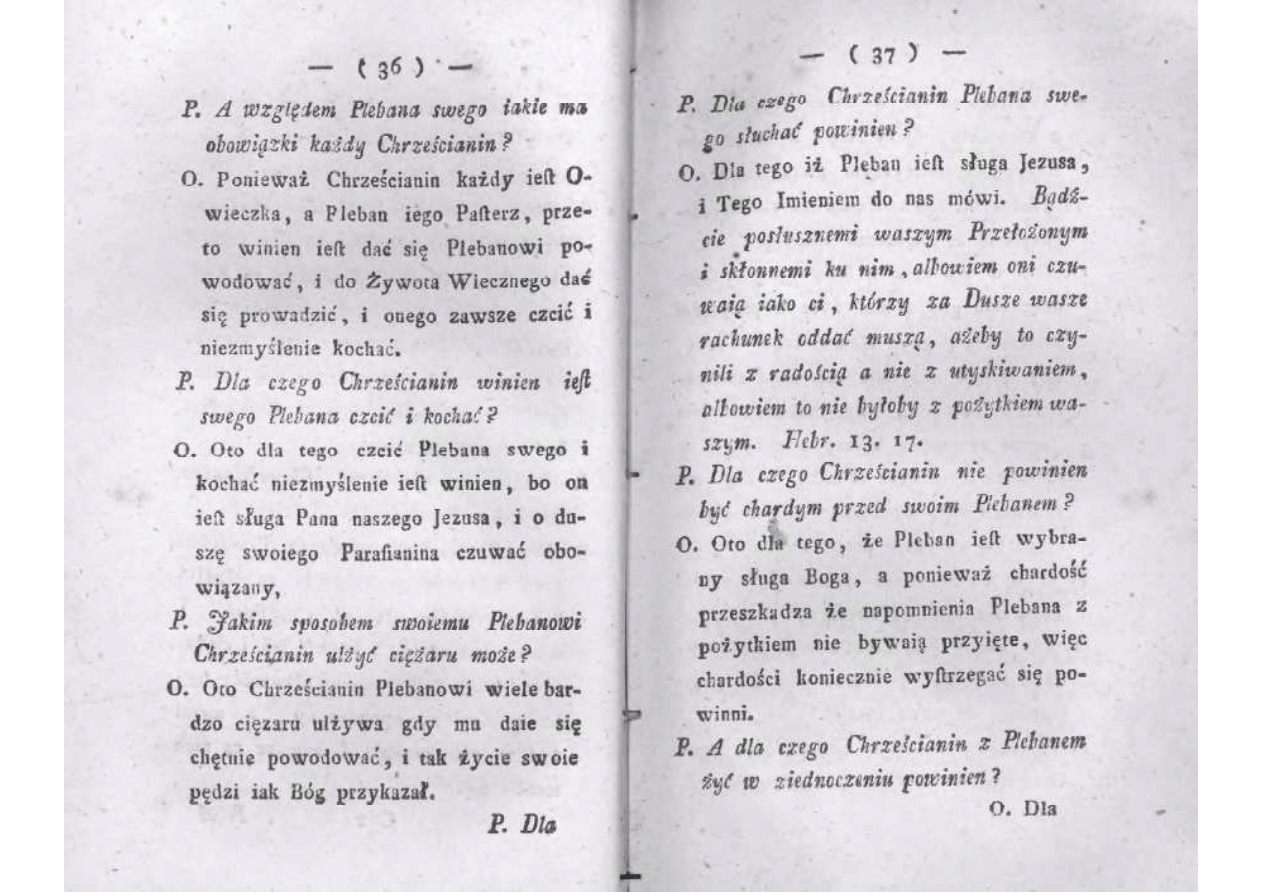 — ( 36 ) —
P. A względem Plebana swego iakie ma
obowiązki każdy Chrześcianin?
O. Ponieważ Chrześcianin każdy ieſt O-
wieczka, a Pleban iego Paſterz, prze-
to winien ieſt dać się Plebanowi po-
wodować, i do Żywota Wiecznego dać
się prowadzić, i onego zawsze czcić i
niezmyślenie kochać.
P. Dla czego Chrześcianin winien ieſt
swego Plebana czcić i kochać?
O. Oto dla tego czcić Plebana swego i
kochać niezmyślenie ieſt winien, bo on
ieſt sługa Pana naszego Jezusa, i o du-
szę swoiego Parafianina czuwać obo-
wiązany,
P. Jakim sposobem swoiemu Plebanowi
Chrześcianin ulżyć ciężaru może?
O. Oto Chrześcianin Plebanowi wiele bar-
dzo ciężaru ulżywa gdy mu daie się
chętnie powodować, i tak życie swoie
pędzi iak Bóg przykazał.
P. Dla
— ( 37 ) —
P. Dla czego Chrześcianin Plebana swe-
go słuchać powinien?
O. Dla tego iż Plęban ieſt sługa Jezusa,
i Tego Imieniem do nas mówi. Bądź-
cie posłusznemi waszym Przełożonym
i skłonnemi ku nim, albowiem oni czu-
waią iako ci, którzy za Dusze wasze
rachunek oddać muszą, ażeby to czy-
nili z radością a nie z utyskiwaniem,
albowiem to nie byłoby z pożytkiem wa-
szym. Hebr. 13. 17.
P. Dla czego Chrześcianin nie powinien
być chardym przed swoim Plebanem?
O. Oto dla tego, że Pleban ieſt wybra-
ny sługa Boga, a ponieważ chardość
przeszkadza że napomnienia Plebana z
pożytkiem nie bywaią przyięte, więc
chardości koniecznie wyſtrzegać się po-
winni.
P. A dla czego Chrześcianin z Plebanem
żyć w ziednoczeniu powinien?
O. Dla